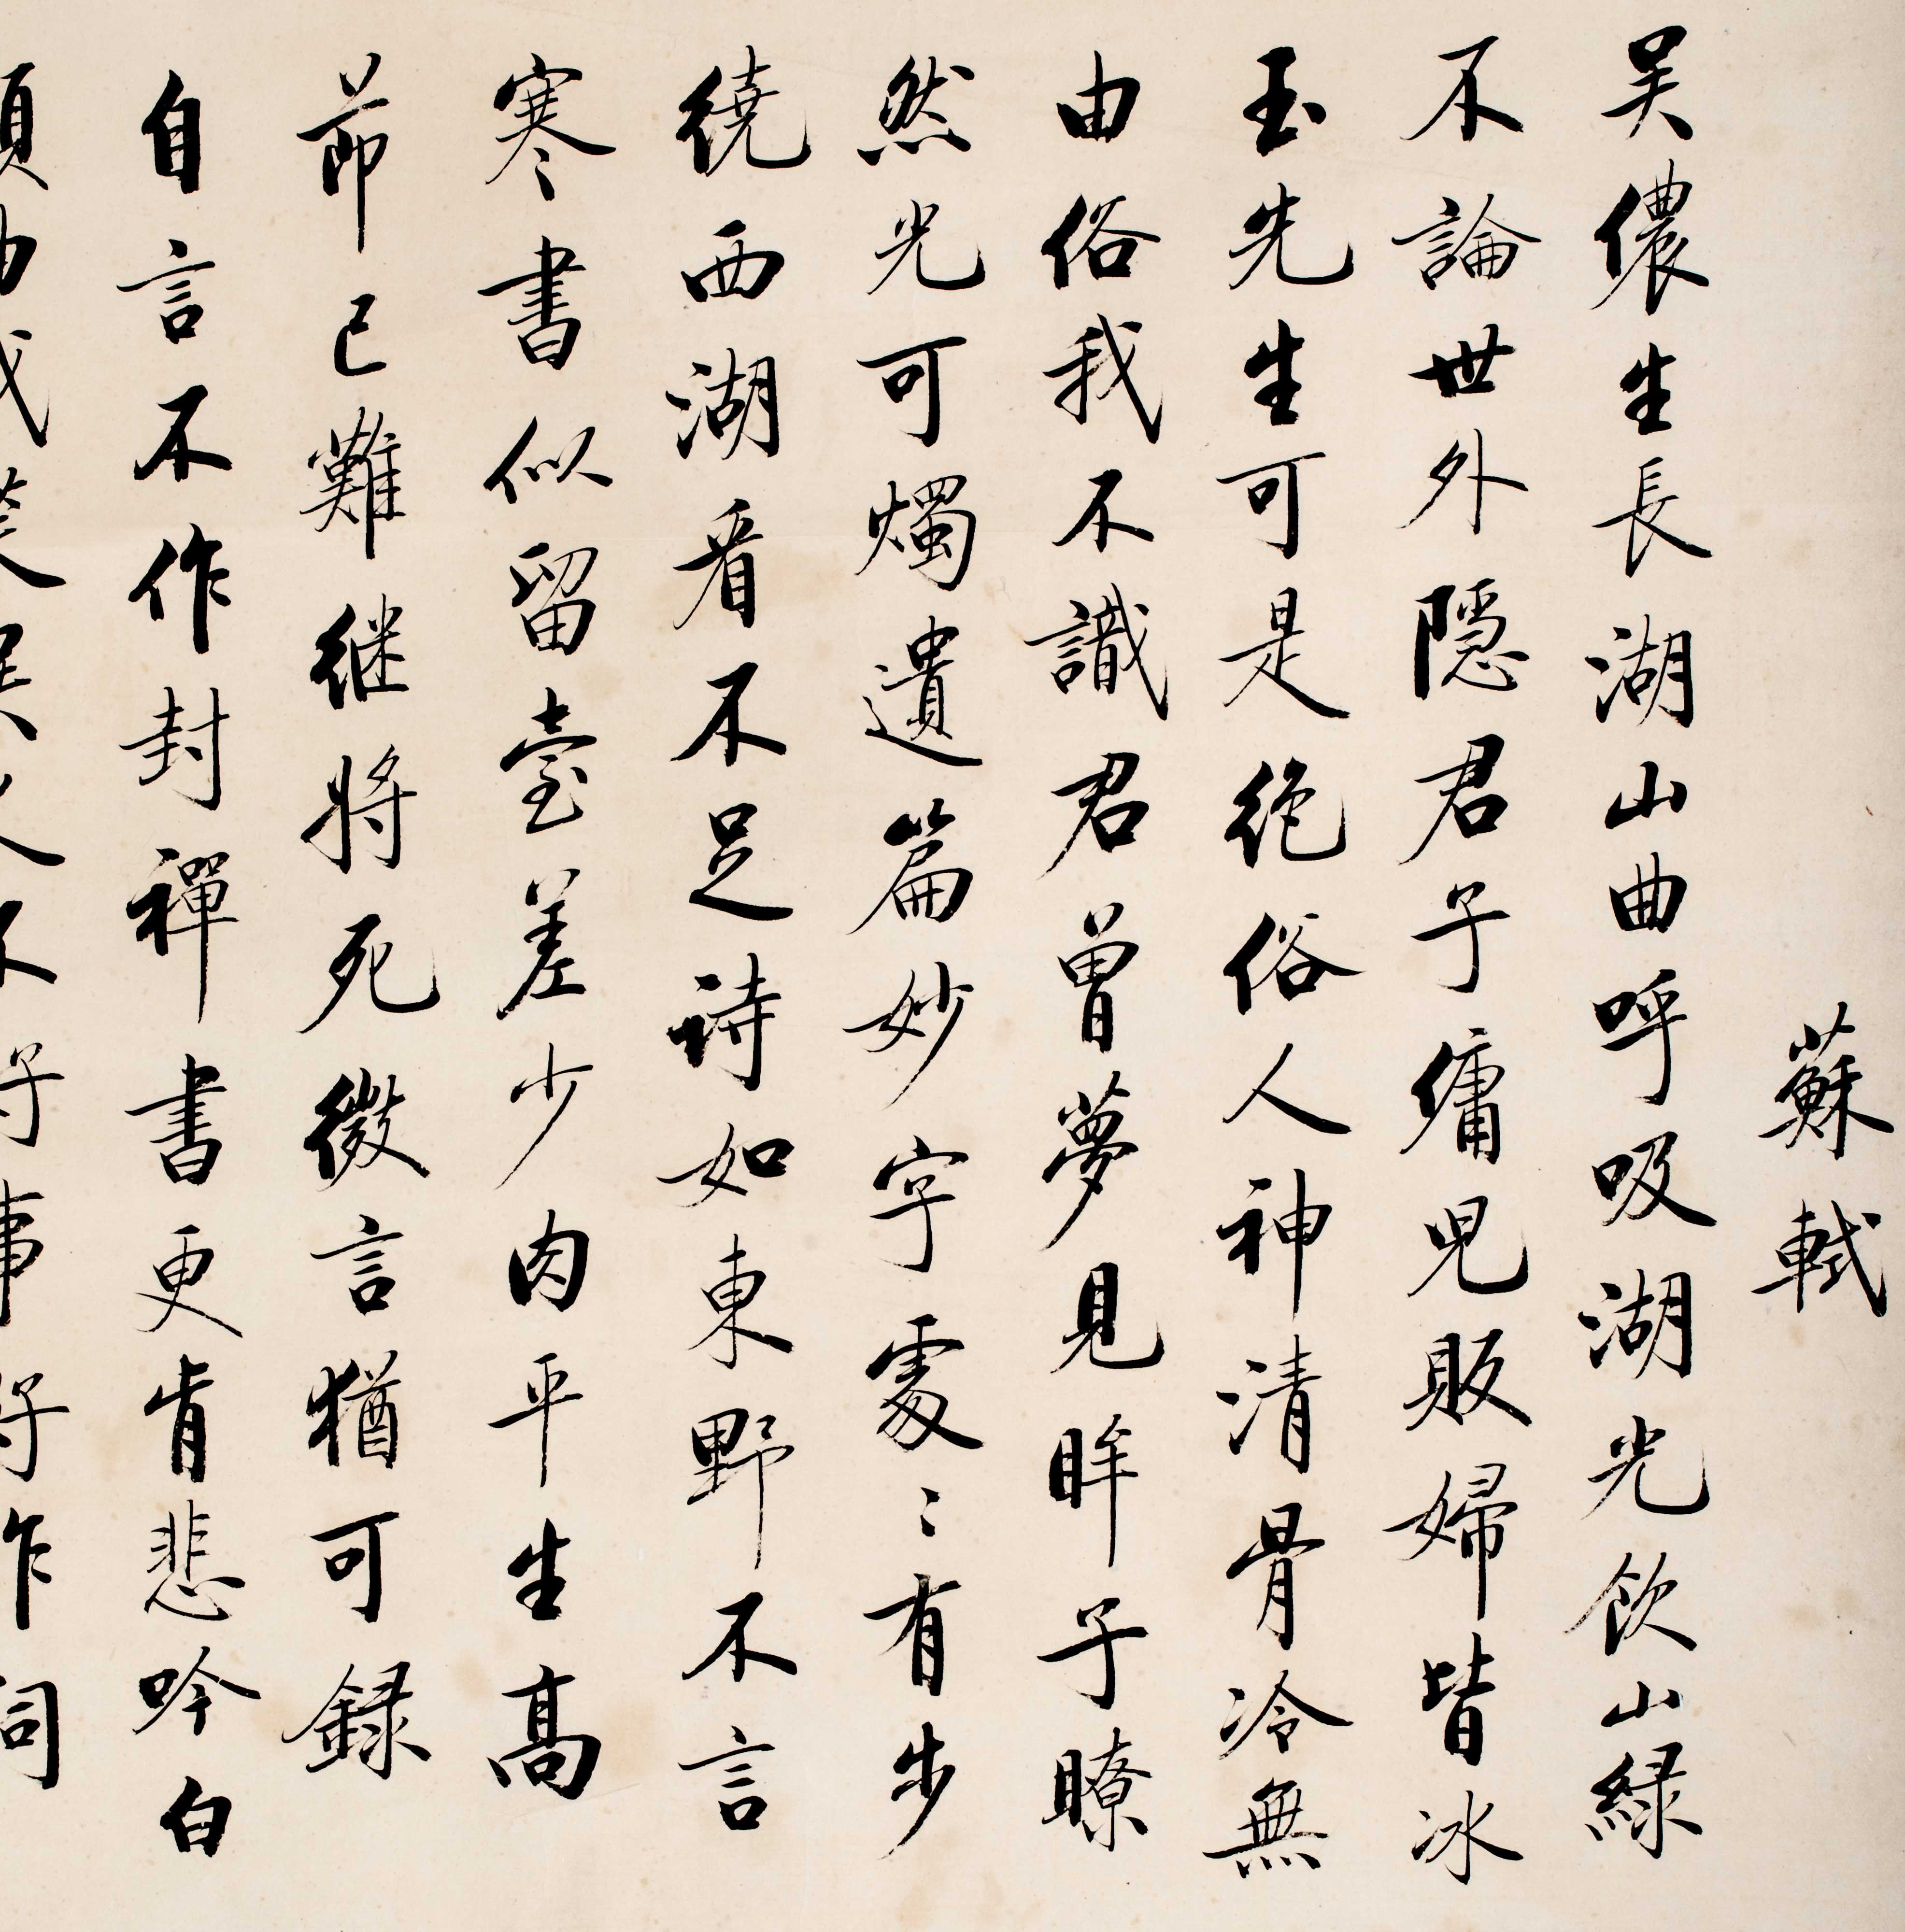 蘇軾
吴儂生長湖山曲呼吸湖光飲山緑
不論世外隠君子傭児販婦皆冰
玉先生可是絶俗人神清骨冷無
由俗我不識君曽夢見眸子瞭
然光可燭遺篇妙字處〻有步
繞西湖看不足詩如東野不言
寒書似留臺差少肉平生髙
節已難継將死微言猶可録
自言不作封禪書更肯悲吟白
頭曲我笑吳人不好事好作祠